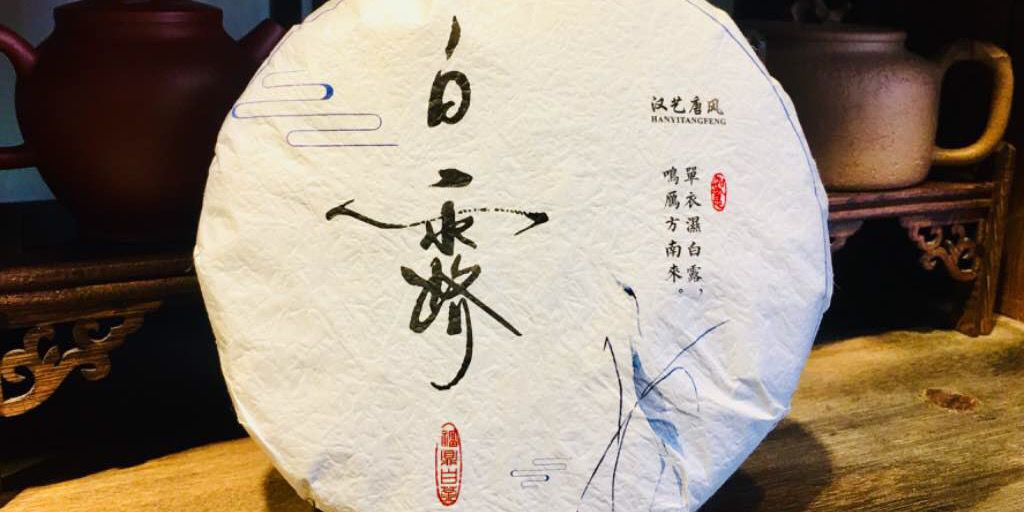 白露
汉艺唐风
HANYITANGFENG
單衣濕白露，
鳴雁方南來。
福鼎白茶